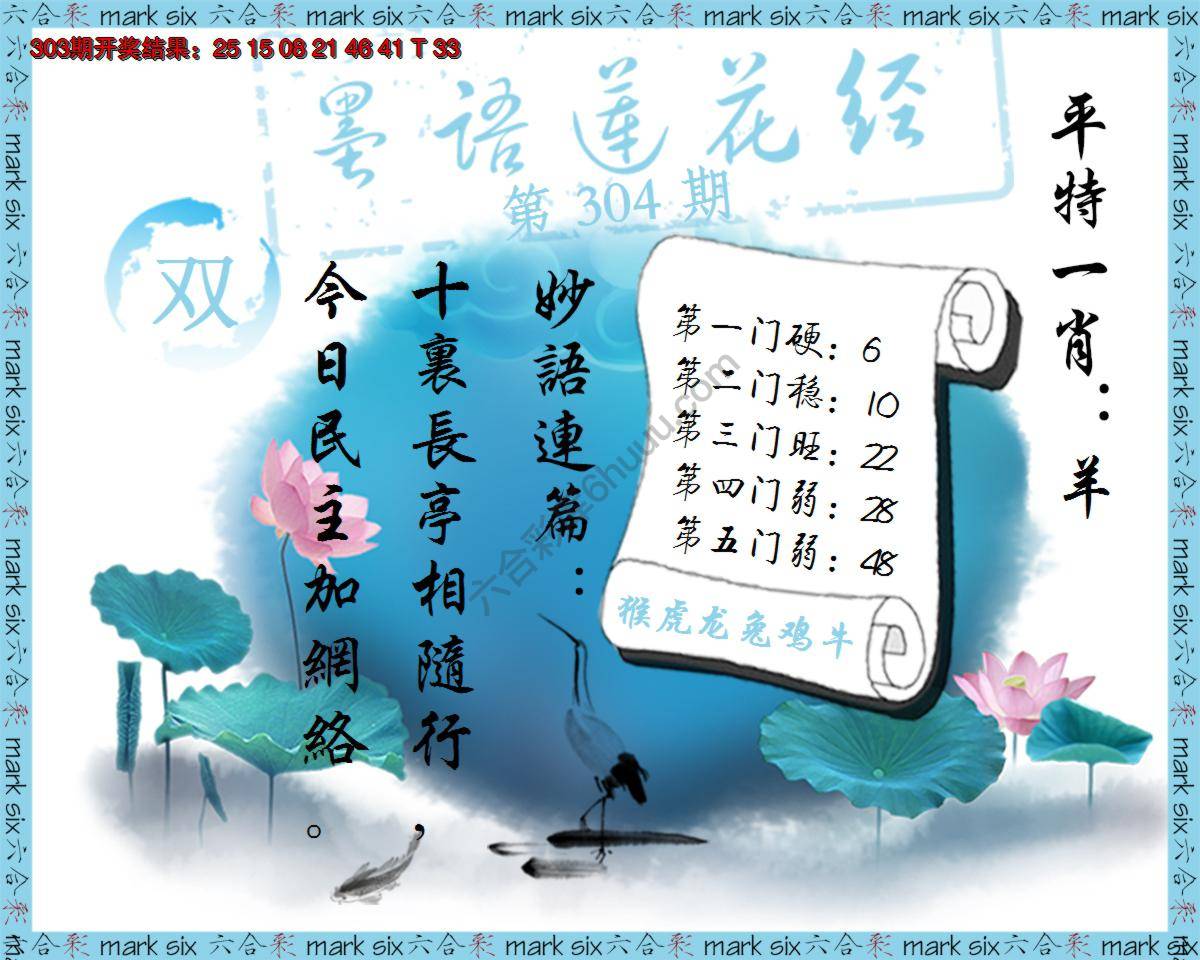 六合彩 mark six 六合彩 mark six 六合彩 mark six 六合彩 mark six 六合彩 mark six 六合彩 mark six
303期开奖结果：25 15 08 21 46 41 T 33
墨語莲花经
第 304 期
双
平特一肖：羊
妙語連篇：
十裏長亭相隨行，
今日民主加網絡。
第一门硬：6
第二门稳：10
第三门旺：22
第四门弱：28
第五门弱：48
猴虎龙兔鸡牛
六合彩 mark six 六合彩 mark six 六合彩 mark six 六合彩 mark six 六合彩 mark six 六合彩 mark six